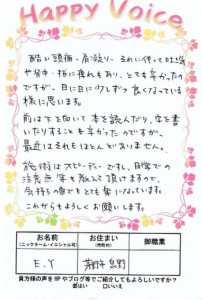 Happy Voice
酷い頭痛・肩凝り、それに伴って吐き気
や背中・指に痺れもあり、とても辛かったの
ですが、日に日に少しずつ良くなっている
様に思います。
前は下を向いて本を読んだり、字を書
いたりすることも辛かったのですが、
最近はそれもほとんどありません。
施術はスピーディーですし、日常での
注意点等も教えて頂けますので、
気持ちの面でもとても楽になっています。
これからもよろしくお願いします。
お名前 お住まい 御職業
(ニックネーム・イニシャル可) (市町村)
E.Y
貴方様の声をHPやブログ等でご紹介してもよろしいですか?
はい □いいえ